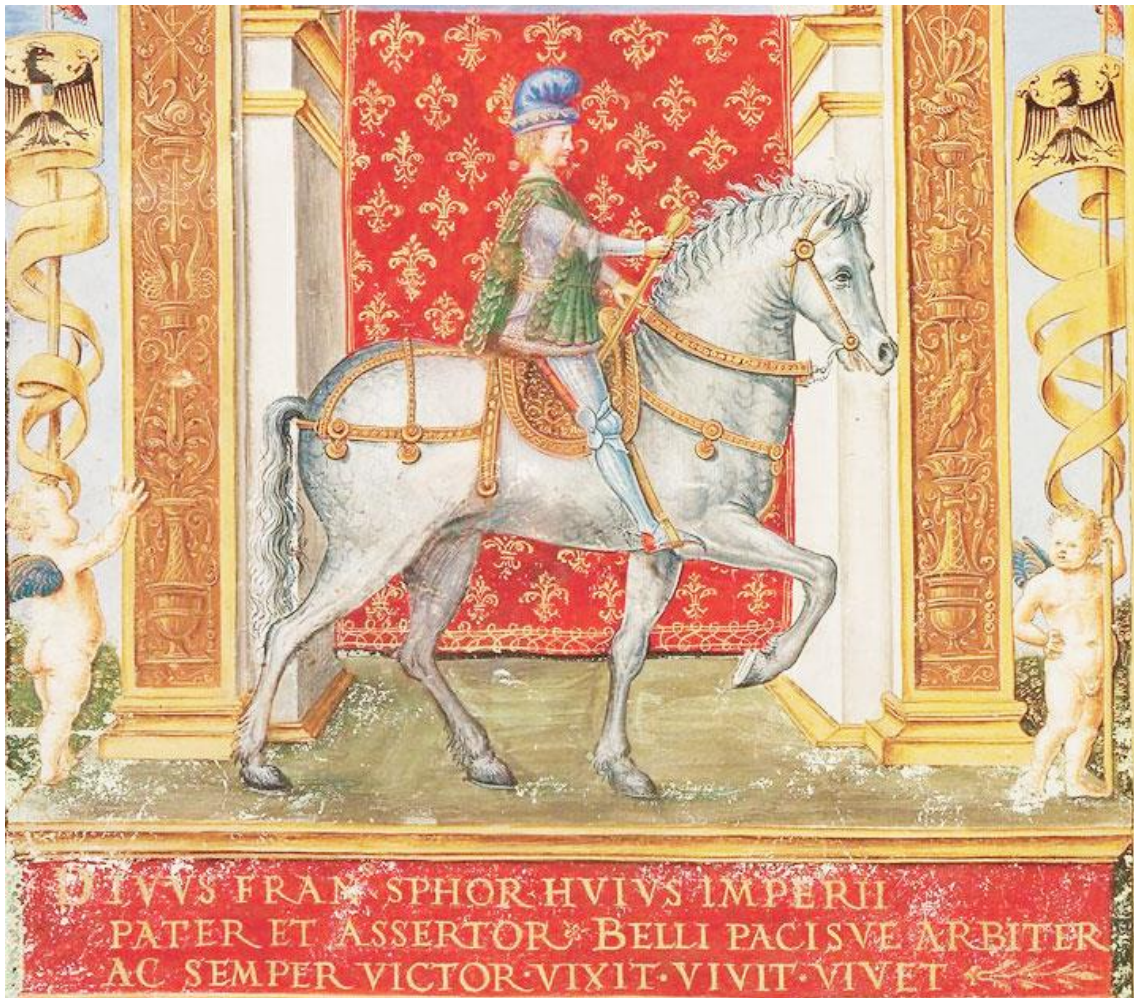 DIVVS FRAN SPHOR HVIVS IMPERII
PATER ET ASSERTOR BELLI PACISVE ARBITER
AC SEMPER VICTOR·VIXIT·VIVIT·VIVET